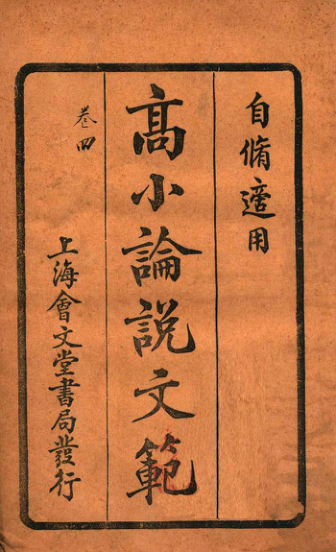 自脩適用
高小論說文範
卷四
上海會文堂書局發行